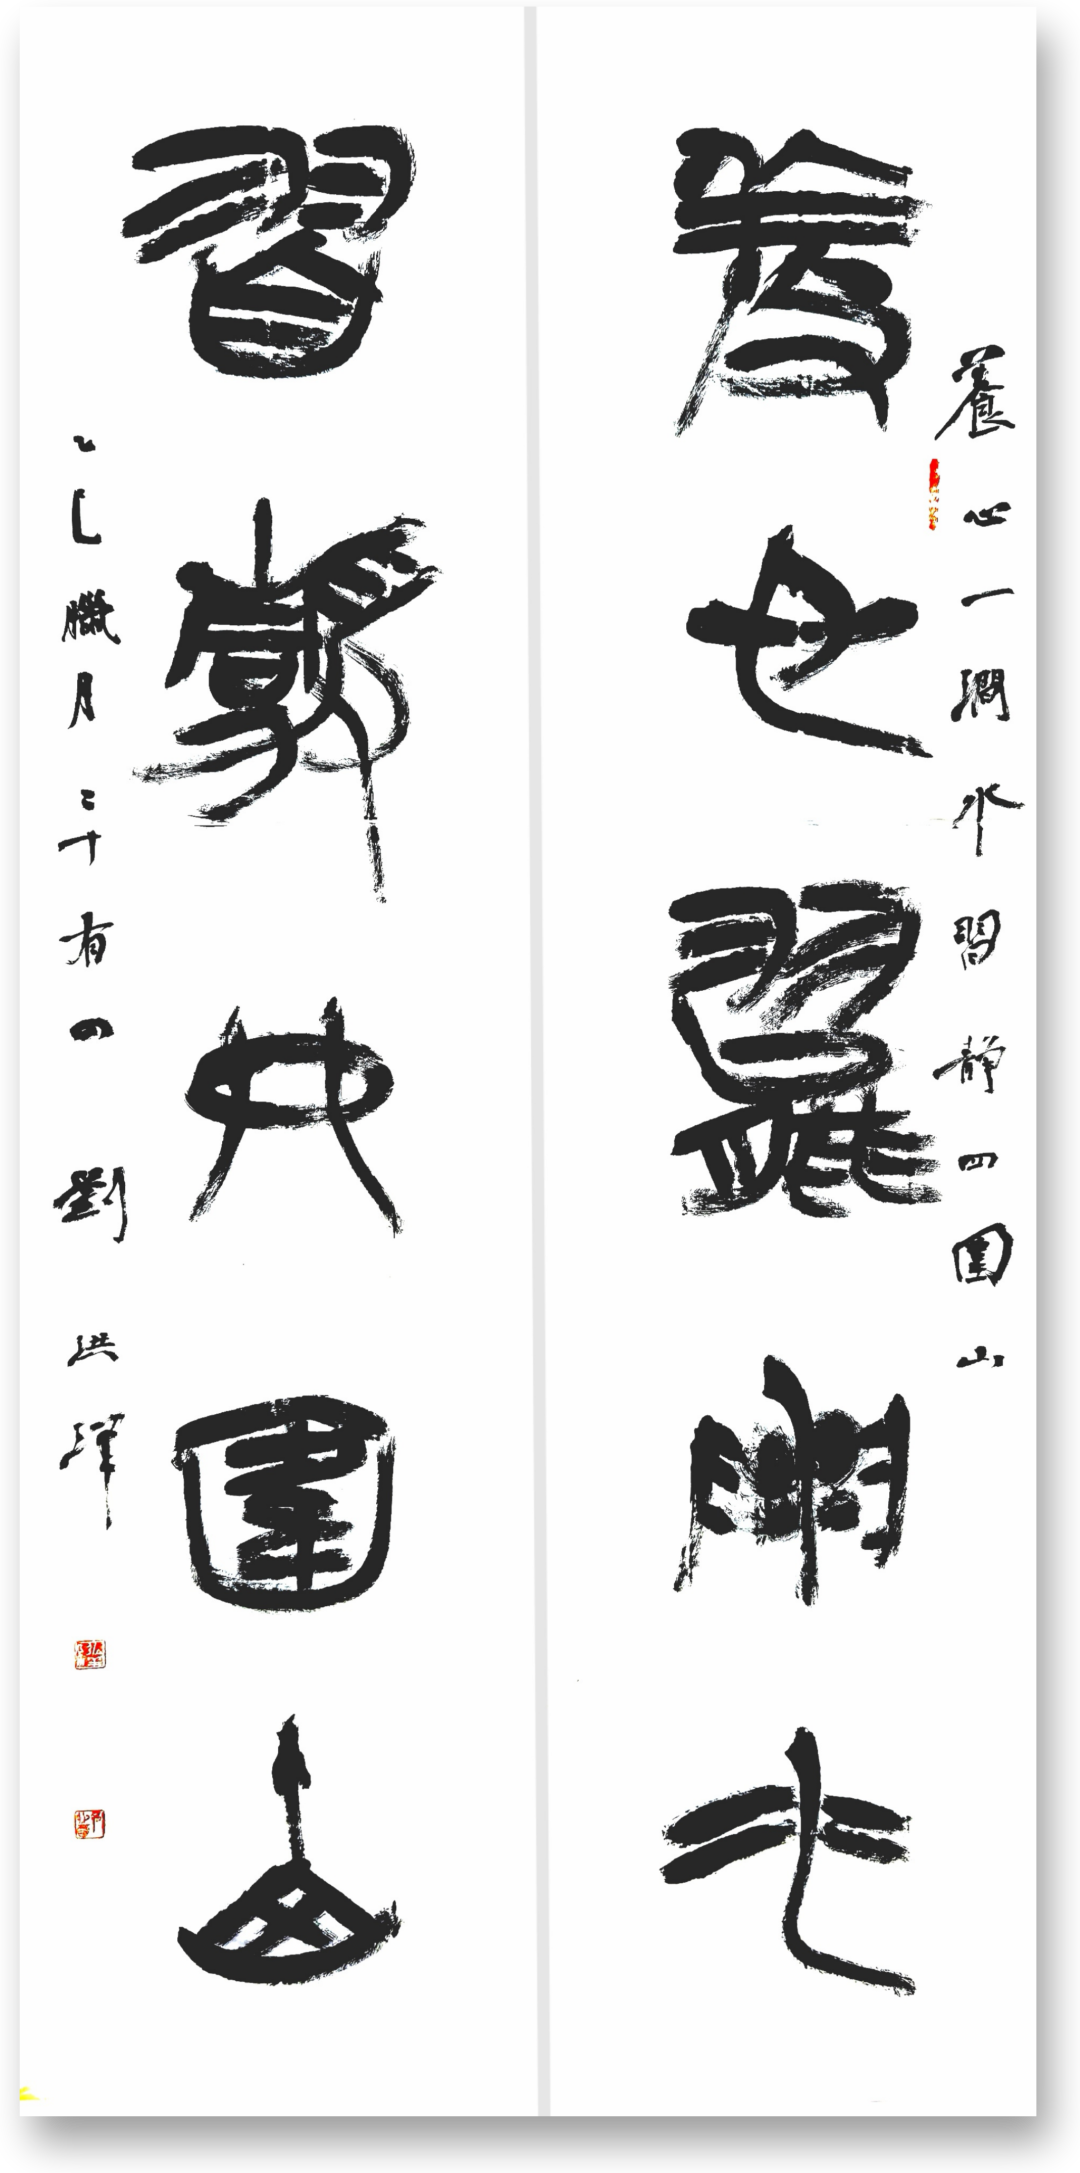 養心一澗水習靜四圍山
養心一澗水
習靜四圍山
乙巳臘月二十有四劉洪